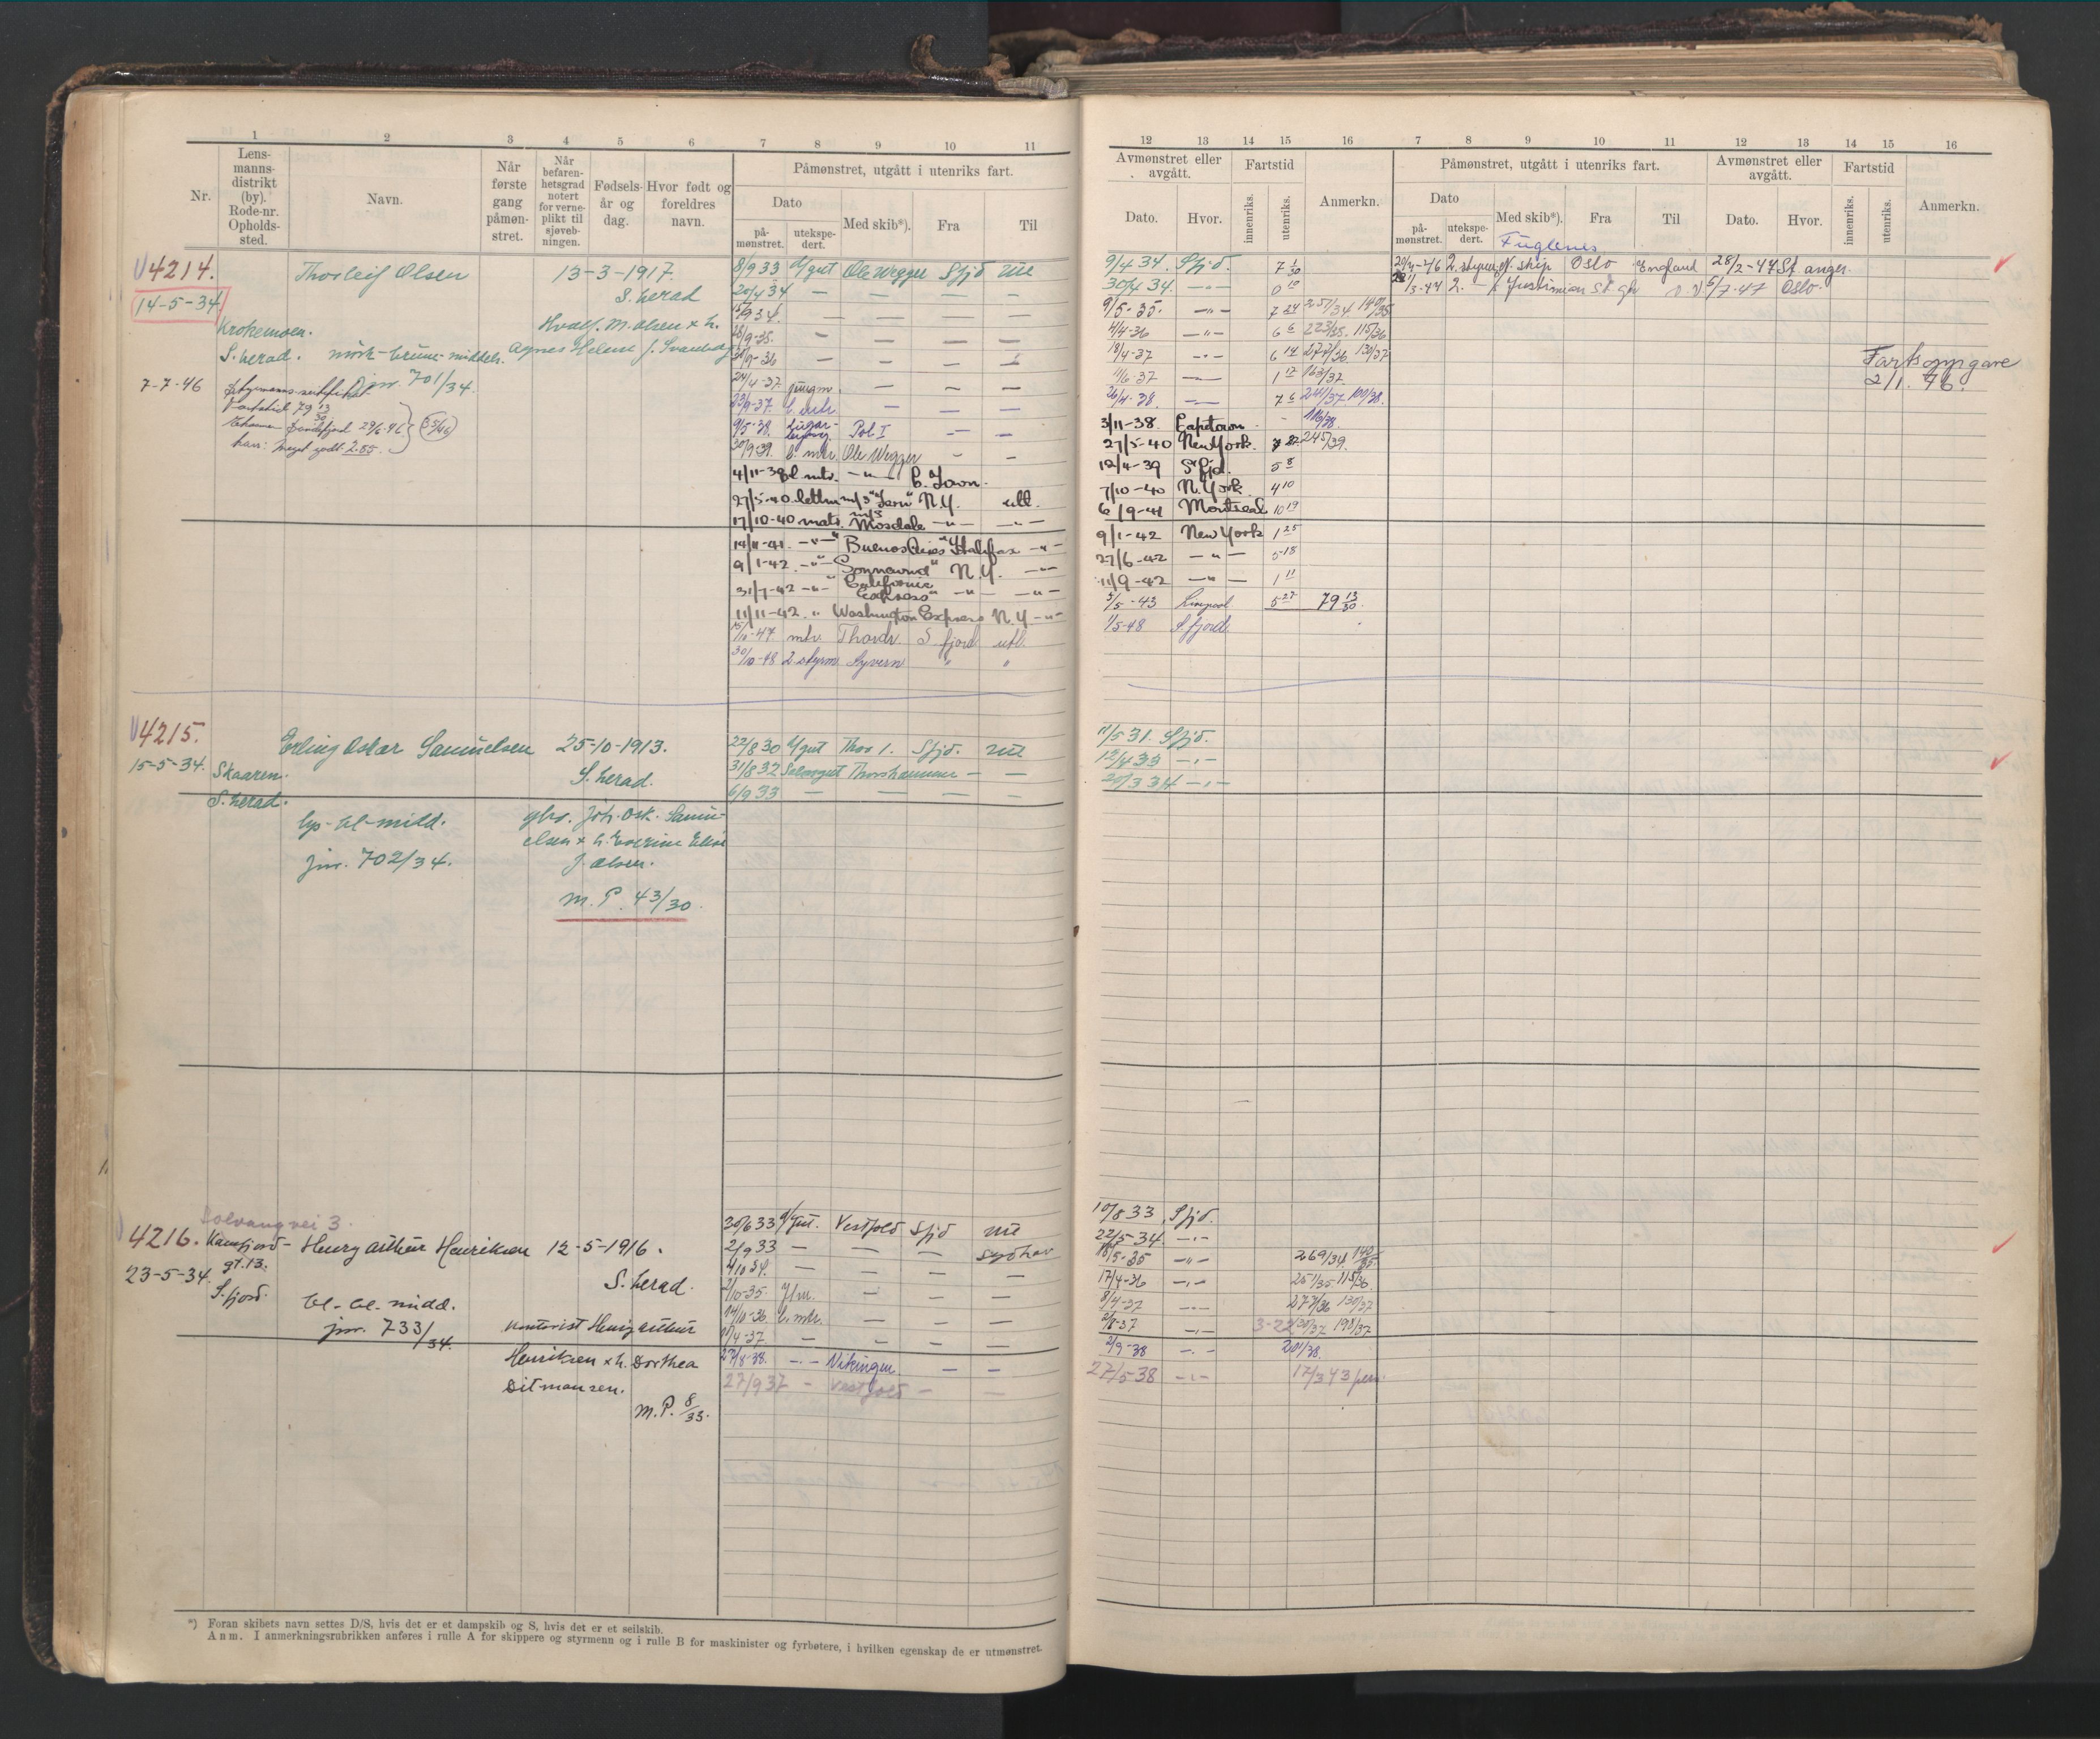 1 2 3 4 5 6 7 8 9 10 11
Nr.
Lens-
manns-
distrikt
(by).
Rode-nr.
Opholds-
sted.
Navn.
Når
første
gang
påmøn-
stret.
Når
befaren-
hetsgrad
notert
for verne-
plikt til
sjøveb-
ningen.
Fødsels-
år og
dag.
Hvor født og
foreldres
navn.
Påmønstret, utgått i utenriks fart.
Dato
på-
mønstret.
utekspe-
dert.
Med skib*).
Fra
Til
4214.
14-5-34
Krokemoen.
S. herad.
Thorleif Olsen
13-3-1917.
S. herad
Hvalf. M. Olsen x h.
Agnes Helene f. Svanberg
mörk-brune-middels.
jnr. 701/34.
7-7-46 Styrmanns-sertifikat
Fartstid 79 13/30
Eksamen Sandefjord 29/6-46
kar: Meget godt 2.55.
8/9 33 d/gut Ole Wegger Sfjd ute
20/4 34 — — — —
9 34. — — — —
/9-35. — — — —
/9-36 — — — —
24/4-37. jungm. — — —
23/9-37. l. mtr. — — —
9/5-38. Pol. I — —
20/9-39. l. mtr. Ole Wegger — —
4/11-38 l. mtr. —"— C. Town.
27/5-40 lettm m/s "Tern" N.Y. utl.
17/10-40 matr. m/s Mosdale —"— —"—
14/11-41. —"— "Buenos Aires" Halifax —"—
9/1-42. —"— "Sommervid" N.Y. —"—
31/7-42 —"— "California Express" —"— —"—
11/11-42. " Washington Express N.Y —"—
15/11-47. mtr. Thordr. S. fjord utl.
30/10-48 2. styrm. Syvern " "
4215.
15-5-34. Skaaren.
S. herad.
Erling Oskar Samuelsen
25-10-1913.
S. herad.
lys-bl-midd.
jnr. 702/34.
gbr. Joh. Osk. Samu-
elsen x h. Everine Elise
f. Olsen.
M. P. 43/30.
22/8 30 d/gut Thor 1. Sfjd. ute
31/8 32 Salongut Thorshammer — —
6/9 33 — — — —
Solvangvei 3.
4216. Kamfjord-
gt. 13.
23-5-34. S. fjord.
Henry Arthur Henriksen
12-5-1916.
S. herad.
bl-bl. midd.
jnr. 733/34.
kontorist Henry Arthur
Henriksen x h. Dorthea
Ditmansen.
M. P. 8/33.
20/6 33 d/gut. Vestfold Sfjd ute
2/9 33 — — — Sydhav
4/10 34. — — — —
2/10-35. J/m. — — —
14/10-36. l. mtr. — — —
11/4-37. — — — —
27/8-38. —"— Vikingen — —
27/9 37 — Vestfold — —
*) Foran skibets navn settes D/S, hvis det er et dampskib og S, hvis det er et seilskib.
Anm. I anmerkningsrubrikken anføres i rulle A for skippere og styrmenn og i rulle B for maskinister og fyrbøtere, i hvilken egenskap de er utmønstret.
12 13 14 15 16 7 8 9 10 11 12 13 14 15 16
Avmønstret eller
avgått.
Fartstid
Dato.
Hvor.
innenriks.
utenriks.
Anmerkn.
Påmønstret, utgått i utenriks fart.
Dato
på-
mønstret.
utekspe-
dert.
Med skib*).
Fra
Til
Avmønstret eller
avgått.
Dato.
Hvor.
Fartstid
innenriks.
utenriks.
Anmerkn.
Fuglenes
9/4 34. Sfjd. 7 1/30
20/7-46 2. styrm. N. skip Oslo England 28/2-47 St. anger.
30/4 34. —"— 0 10
1/3-47 2. — Justinian St. gr 5/7-47 Oslo.
9/5-35. —"— 7 24 257/34 140/35
4/4-36 —"— 6 6 223/35. 115/36
18/4-37 —"— 6 14 277/36 130/37
11/6-37 —"— 1 17 163/37.
26/4-38. —"— 7 6 241/37 100/38.
Fartsoppgave
2/1. 76.
3/11-38. Capetown - 116/38.
27/5-40 New York. 7 27 245/39.
12/4-39 S.fjd. 5 8
7/10-40 N. York 4 10
6/9-41 Montreal 10 19
9/1-42 New York 1 25
27/6-42 —"— 5-18
11/9-42 —"— 1 11
5/5-43 Liverpool 5 27 79 13/30
1/5-48 S. fjord.
11/5 31. Sfjd.
12/4 33 —"—
20/3 34 —"—
10/8 33 Sfjd.
22/5-34. —"—
18/5-35 —"— 269/34 140/35
17/4-36 —"— 251/35 115/36
8/4-37 —"— 277/36 130/37
2/8-37 —"— 3-22 130/37 198/37
2/9-38 —"— 201/38.
27/5-38 —"—